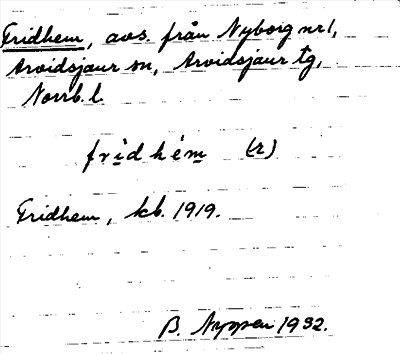 Fridhem, avs. från Nyborg nr 1,
Arvidsjaur sn, Arvidsjaur tg,
Norrb. l.
fridhém (r)
Fridhem, kb. 1919.
B. Nyppen 1932.